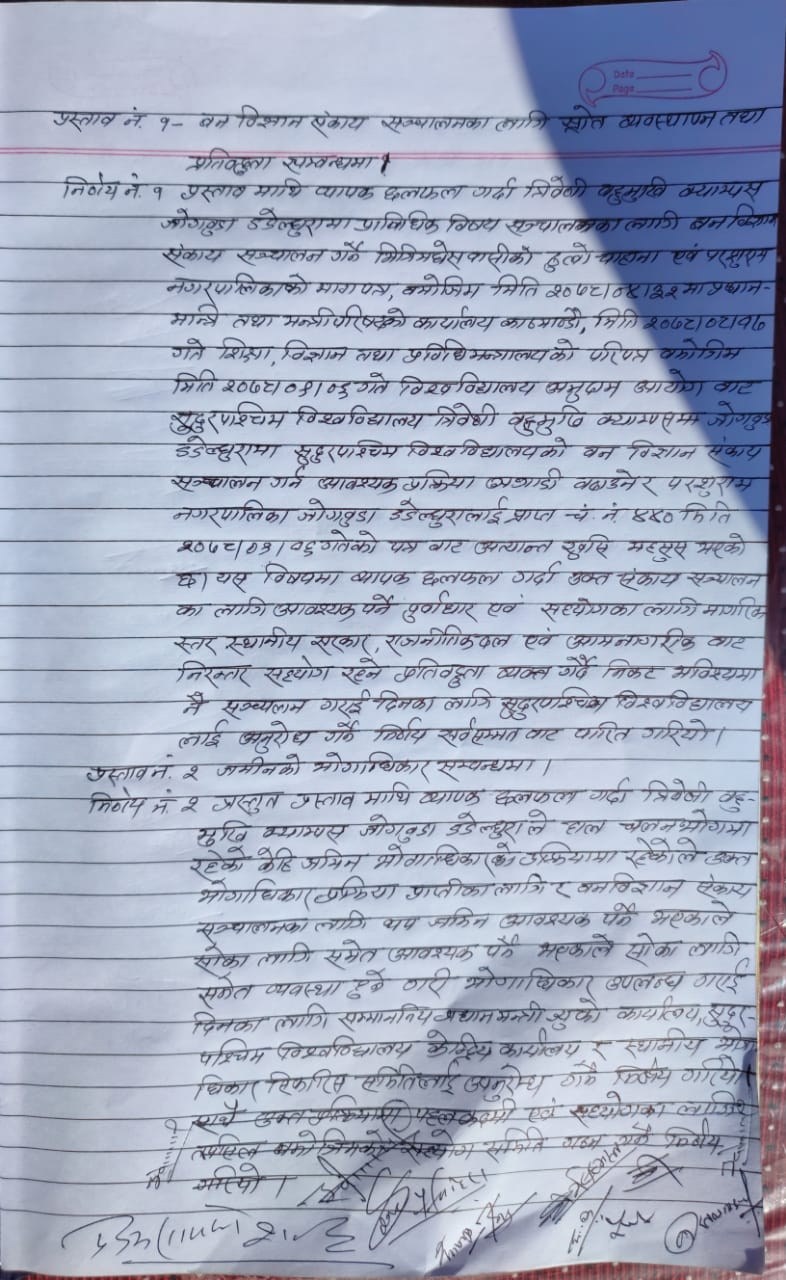 Date
Page
प्रस्ताव नं. १- वन विज्ञान संकाय सञ्चालनका लागि स्रोत व्यवस्थापन तथा
प्रतिवद्धता सम्बन्धमा।
निर्णय नं. १ प्रस्ताव माथि व्यापक छलफल गर्दा त्रिवेणी बहुमुखि क्याम्पस
जोगवुडा डडेल्धुरामा प्राविधिक विषय सञ्चालनका लागि वन विज्ञान
संकाय सञ्चालन गर्ने ठुलो चाहाना एवं परशुराम
नगरपालिकाको माग पत्र, वमोजिम मिति मा प्रधान-
मन्त्रि तथा मन्त्रीपरिषद्को कार्यालय काठमाण्डौ, मिति
गते शिक्षा, विज्ञान तथा प्रविधि मन्त्रालयको परिपत्र वमोजिम
मिति गते विश्वविद्यालय अनुदान आयोग वाट
सुदुरपश्चिम विश्वविद्यालय त्रिवेणी वहुमुखि क्याम्पसमा जोगवुडा
डडेल्धुरामा सुदुरपश्चिम विश्वविद्यालयको वन विज्ञान संकाय
सञ्चालन गर्न आवश्यक प्रक्रिया अगाडी वढाउने र परशुराम
नगरपालिका जोगवुडा डडेल्धुरालाई प्राप्त च. नं. ४४० मिति
गतेको पत्र वाट अत्यान्त खुसि महसुस भएको
छ। यस विषयमा व्यापक छलफल गर्दा उक्त संकाय सञ्चालन
का लागि आवश्यक पर्ने पुर्वाधार एवं सहयोगका लागि
स्तर स्थानीय सरकार, राजनीतिक दल एवं आमनागरिक वाट
निरन्तर सहयोग रहने प्रतिवद्धता व्यक्त गर्दै निकट भविश्यमा
नै सञ्चालन गराई दिनका लागि सुदुरपश्चिम विश्वविद्यालय
लाई अनुरोध गर्ने निर्णय सर्वसम्मत वाट पारित गरियो।
प्रस्ताव नं. २ जमीनको भोगाधिकार सम्वन्धमा।
निर्णय नं. २ प्रस्तुत प्रस्ताव माथि व्यापक छलफल गर्दा त्रिवेणी वहु-
मुखि क्याम्पस जोगवुडा डडेल्धुराले हाल चलनभोगमा
रहेको केहि जमिन भोगाधिकारको प्रक्रियामा रहेकोले उक्त
भोगाधिकार प्रक्रिया प्राप्तीका लागि र वनविज्ञान संकाय
सञ्चालनका लागि थप जमिन आवश्यक पर्ने भएकाले
सोका लागि समेत आवश्यक पर्ने भएकाले सोका लागि
समेत व्यवस्था हुने गरी भोगाधिकार उपलब्ध गराई
दिनका लागि सम्माननिय प्रधानमन्त्री ज्युको कार्यालय, सुदुर-
पश्चिम विश्वविद्यालय केन्द्रिय कार्यालय र स्थानीय भोगा
धिकार सिफारिस समितिलाई अनुरोध गर्ने निर्णय गरियो।
साथै उक्त प्रक्रियामा पहलकदमी एवं सहयोगका लागि
तपसिल वमोजिमको समिति गठन गर्ने निर्णय
गरियो।